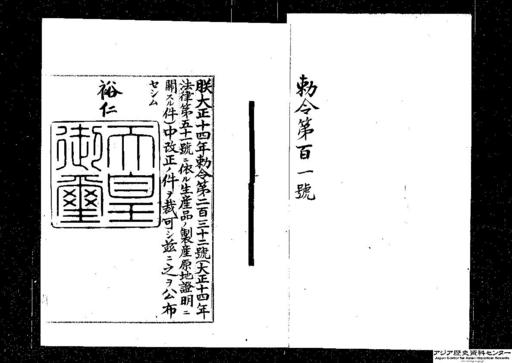 勅令第百一號
朕大正十四年勅令第二百三十二號(大正十四年
法律第五十一號ニ依ル生産品ノ製産原地證明ニ
關スル件)中改正ノ件ヲ裁可シ茲ニ之ヲ公布
セシム
裕仁
天皇
御璽
アジア歴史資料センター
Japan Center for Asian Historical Records